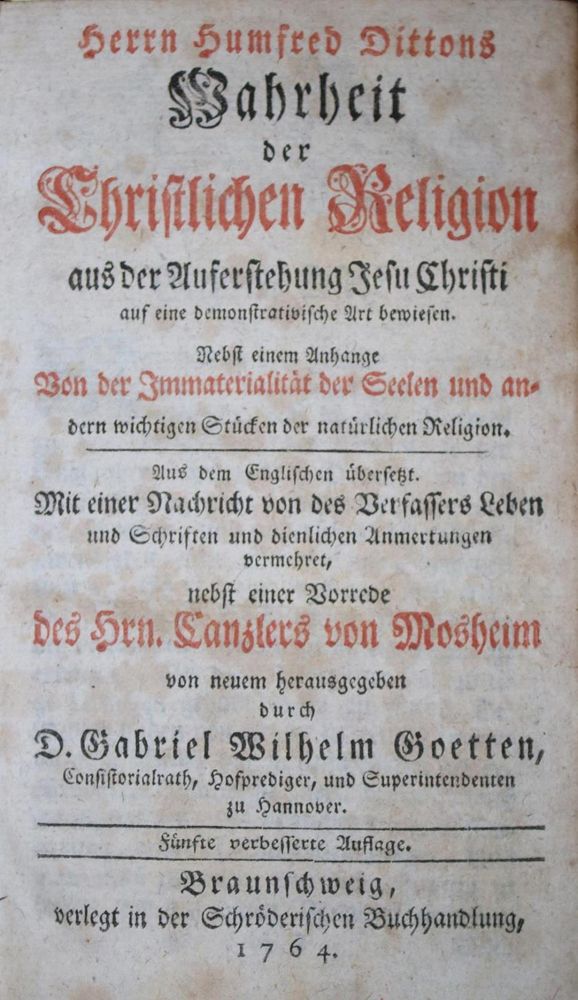 Herrn Humfred Dittons
Wahrheit
der
Christlichen Religion
aus der Auferstehung Jesu Christi
auf eine demonstrativische Art bewiesen.
Nebst einem Anhange
Von der Immaterialität der Seelen und an-
dern wichtigen Stücken der natürlichen Religion.
Aus dem Englischen übersetzt.
Mit einer Nachricht von des Verfassers Leben
und Schriften und dienlichen Anmerkungen
vermehret,
nebst einer Vorrede
des Hrn. Canzlers von Mosheim
von neuem herausgegeben
durch
D. Gabriel Wilhelm Goetten,
Consistorialrath, Hofprediger, und Superintendenten
zu Hannover.
Fünfte verbesserte Auflage.
Braunschweig,
verlegt in der Schröderischen Buchhandlung,
1764.